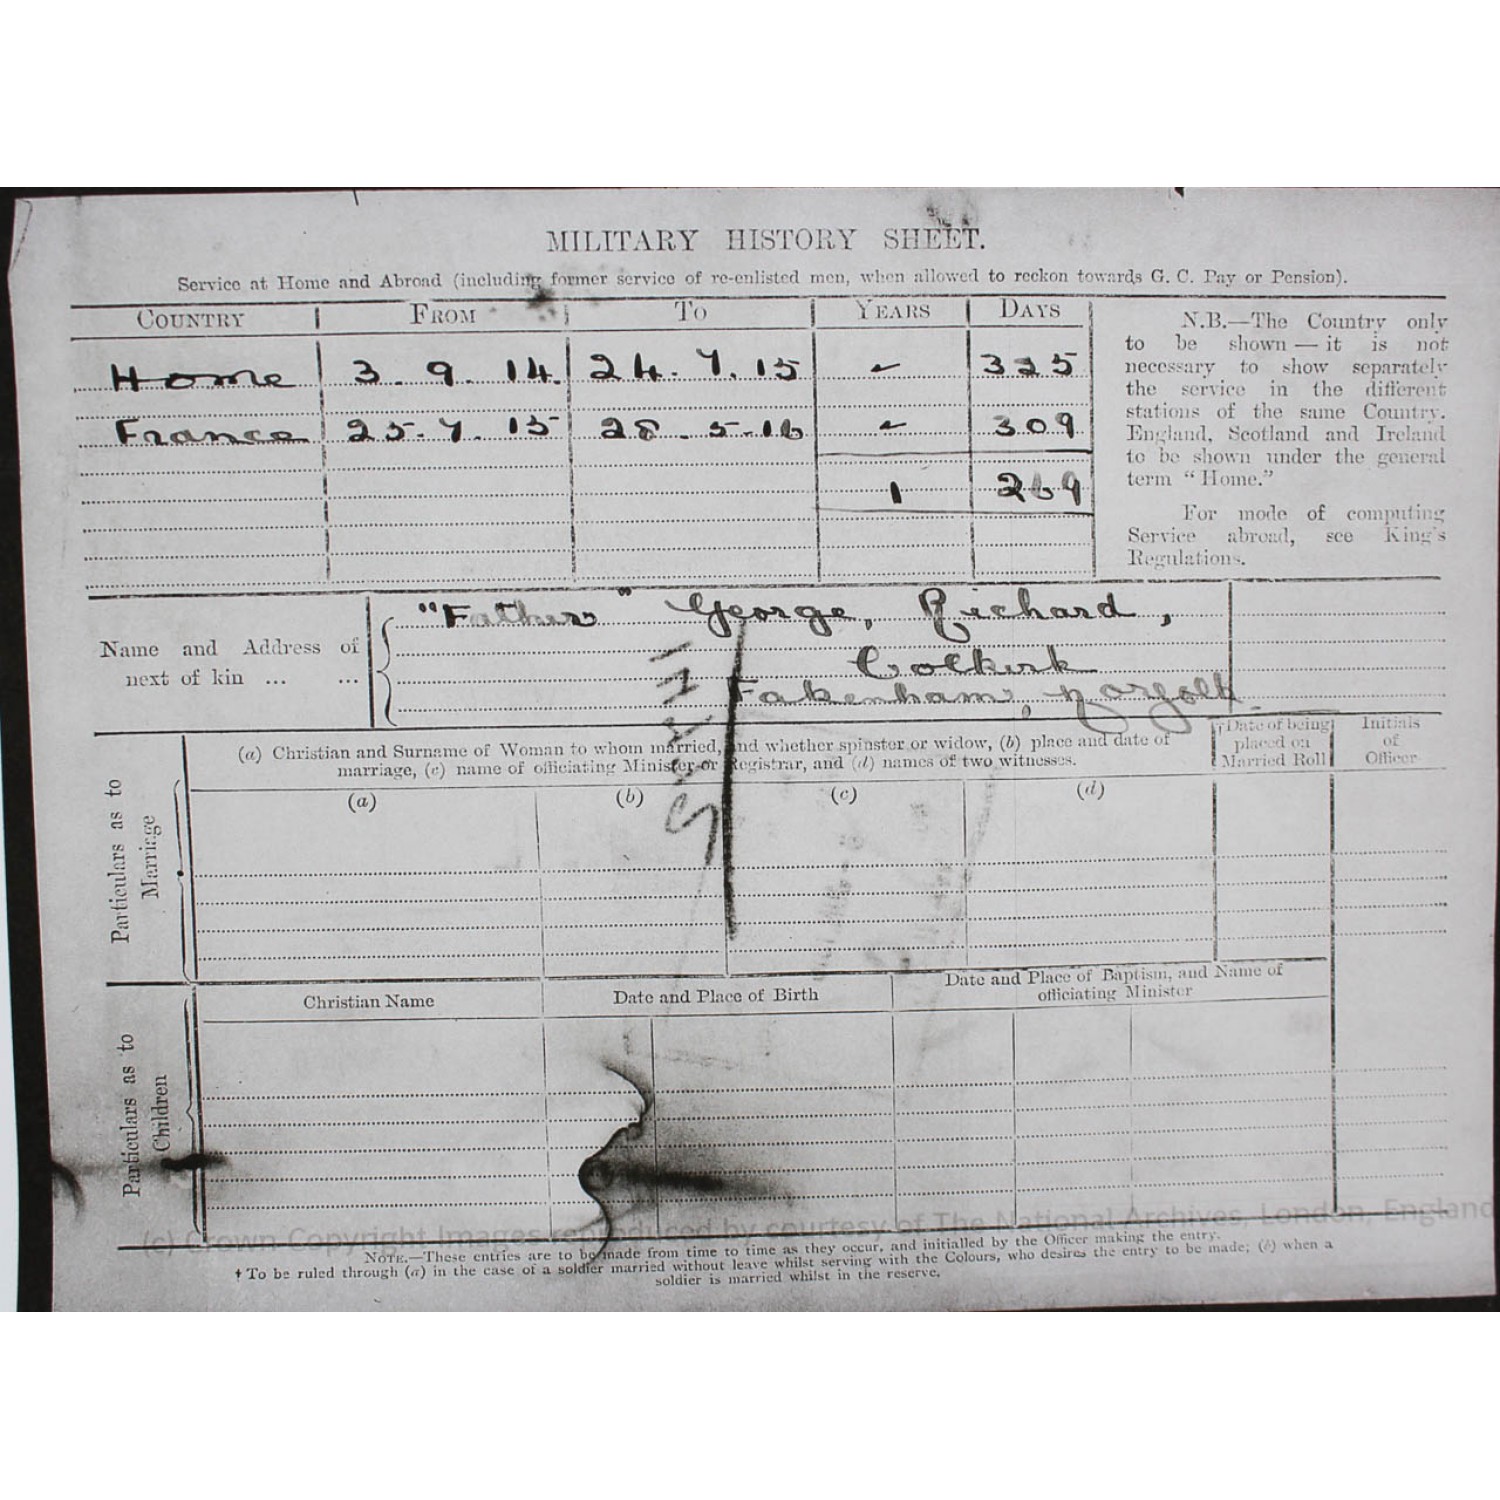 MILITARY HISTORY SHEET.
Service at Home and Abroad (including former service of re-enlisted men, when allowed to reckon towards G. C. Pay or Pension).
COUNTRY FROM TO YEARS DAYS
Home 3. 9. 14. 24. 7. 15 325
France 25. 7. 15 28. 5. 16 309
1 269
N.B.—The Country only
to be shown — it is not
necessary to show separately
the service in the different
stations of the same Country.
England, Scotland and Ireland
to be shown under the general
term “Home.”
For mode of computing
Service abroad, see King's
Regulations.
Name and Address of
next of kin ... ...
"Father" George, Richard,
Colkirk
Fakenham, Norfolk.
Particulars as to
Marriage
(a) Christian and Surname of Woman to whom married, and whether spinster or widow, (b) place and date of
marriage, (c) name of officiating Minister or Registrar, and (d) names of two witnesses.
†Date of being
placed on
Married Roll
Initials
of
Officer
(a) (b) (c) (d)
Particulars as to
Children
Christian Name Date and Place of Birth
Date and Place of Baptism, and Name of
officiating Minister
(c) Crown Copyright Images reproduced by courtesy of The National Archives, London, England
NOTE.—These entries are to be made from time to time as they occur, and initialled by the Officer making the entry.
† To be ruled through (a) in the case of a soldier married without leave whilst serving with the Colours, who desires the entry to be made; (b) when a
soldier is married whilst in the reserve.